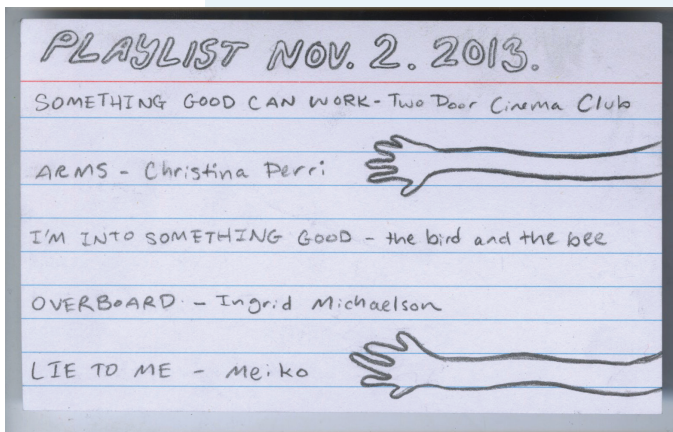 PLAYLIST NOV. 2. 2013.
SOMETHING GOOD CAN WORK - Two Door Cinema Club
ARMS - Christina Perri
I'M INTO SOMETHING GOOD - the bird and the bee
OVERBOARD - Ingrid Michaelson
LIE TO ME - Meiko